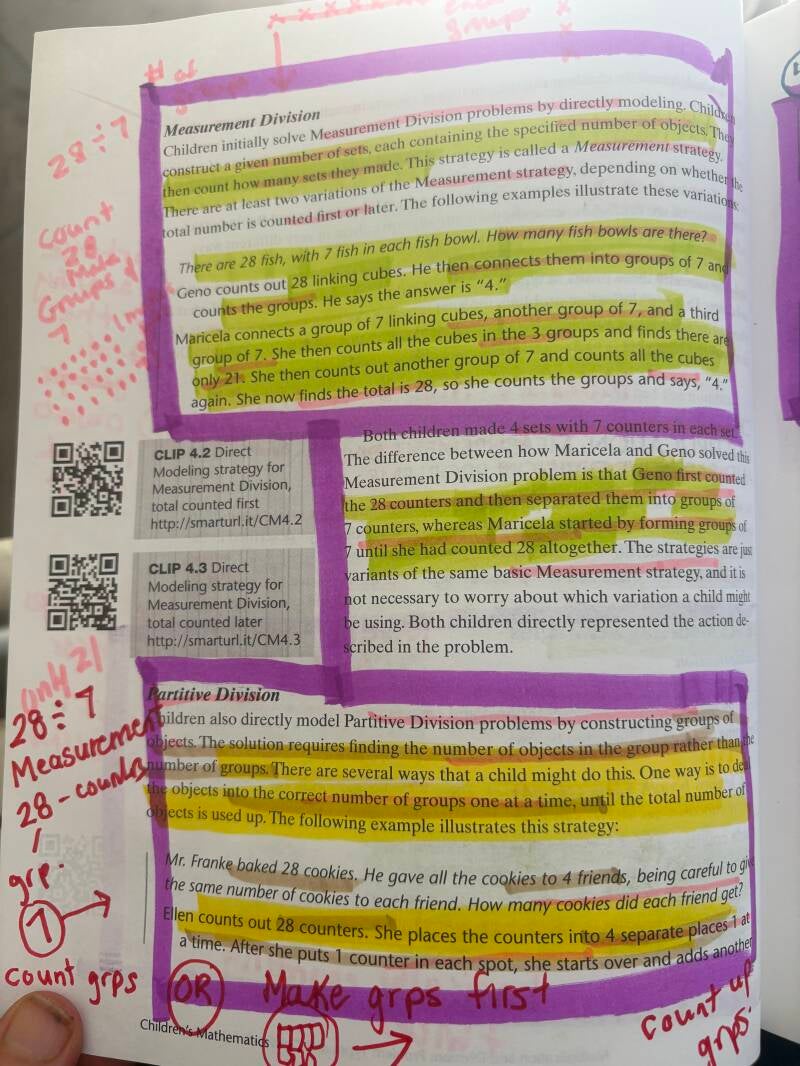 # of
groups
28 ÷ 7
count
28
Make
Groups of
7
Measurement Division
Children initially solve Measurement Division problems by directly modeling. Children
construct a given number of sets, each containing the specified number of objects. They
then count how many sets they made. This strategy is called a Measurement strategy.
There are at least two variations of the Measurement strategy, depending on whether the
total number is counted first or later. The following examples illustrate these variations:
There are 28 fish, with 7 fish in each fish bowl. How many fish bowls are there?
Geno counts out 28 linking cubes. He then connects them into groups of 7 and
counts the groups. He says the answer is "4."
Maricela connects a group of 7 linking cubes, another group of 7, and a third
group of 7. She then counts all the cubes in the 3 groups and finds there are
only 21. She then counts out another group of 7 and counts all the cubes
again. She now finds the total is 28, so she counts the groups and says, "4."
CLIP 4.2 Direct
Modeling strategy for
Measurement Division,
total counted first
http://smarturl.it/CM4.2
CLIP 4.3 Direct
Modeling strategy for
Measurement Division,
total counted later
http://smarturl.it/CM4.3
Both children made 4 sets with 7 counters in each set.
The difference between how Maricela and Geno solved this
Measurement Division problem is that Geno first counted
the 28 counters and then separated them into groups of
7 counters, whereas Maricela started by forming groups of
7 until she had counted 28 altogether. The strategies are just
variants of the same basic Measurement strategy, and it is
not necessary to worry about which variation a child might
be using. Both children directly represented the action de-
scribed in the problem.
Partitive Division
Children also directly model Partitive Division problems by constructing groups of
objects. The solution requires finding the number of objects in the group rather than the
number of groups. There are several ways that a child might do this. One way is to deal
the objects into the correct number of groups one at a time, until the total number of
objects is used up. The following example illustrates this strategy:
Mr. Franke baked 28 cookies. He gave all the cookies to 4 friends, being careful to give
the same number of cookies to each friend. How many cookies did each friend get?
Ellen counts out 28 counters. She places the counters into 4 separate places 1 at
a time. After she puts 1 counter in each spot, she starts over and adds another
28 ÷ 7
Measurement
28 - counters
grp.
7
count grps
OR
Make grps first
count up
grps.
Children's Mathematics